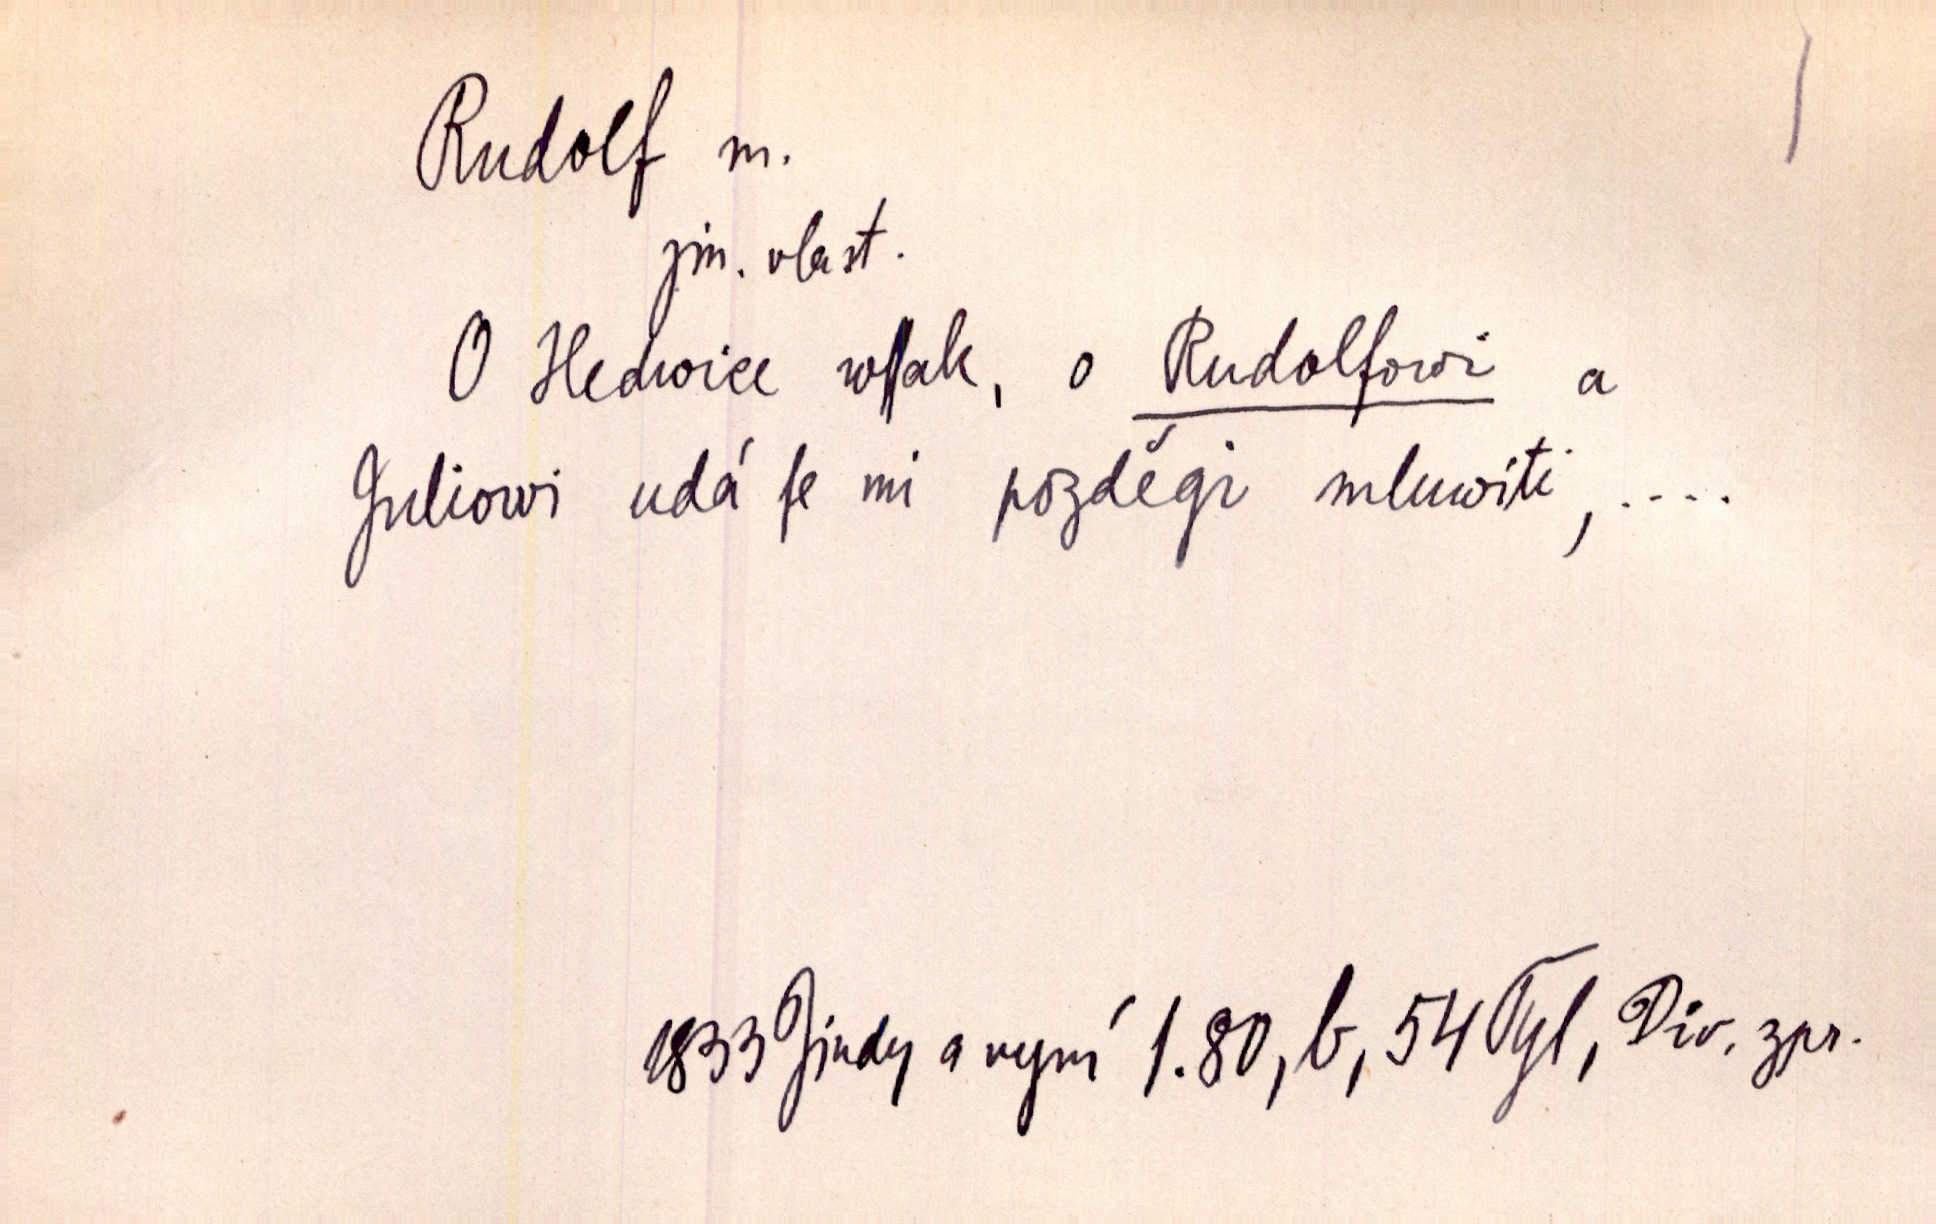 Rudolf m.
jm. vlast.
O Hedwice wſſak, o Rudolfowi a
Guliowi udá ſe mi pozděgi mluwiti, ....
1833 Jindy a nyní 1.80, b, 54 Tyl, Div. zpr.